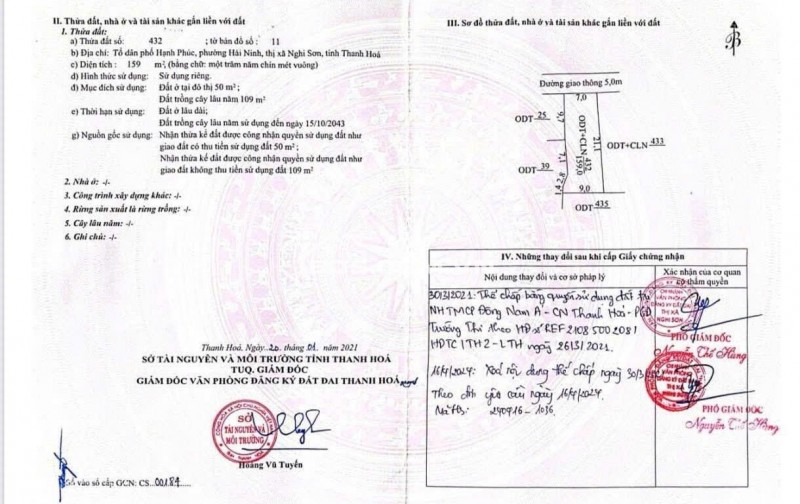 II. Thửa đất, nhà ở và tài sản khác gắn liền với đất
1. Thửa đất:
a) Thửa đất số: 432 ; tờ bản đồ số: 11
b) Địa chỉ: Tổ dân phố Hạnh Phúc, phường Hải Ninh, thị xã Nghi Sơn, tỉnh Thanh Hoá
c) Diện tích : 159 m², (bằng chữ: một trăm năm chín mét vuông)
d) Hình thức sử dụng: Sử dụng riêng.
đ) Mục đích sử dụng: Đất ở tại đô thị 50 m²;
Đất trồng cây lâu năm 109 m²
e) Thời hạn sử dụng: Đất ở lâu dài;
Đất trồng cây lâu năm sử dụng đến ngày 15/10/2043
g) Nguồn gốc sử dụng: Nhận thừa kế đất được công nhận quyền sử dụng đất như
giao đất có thu tiền sử dụng đất 50 m²;
Nhận thừa kế đất được công nhận quyền sử dụng đất như
giao đất không thu tiền sử dụng đất 109 m²
2. Nhà ở: -/-
3. Công trình xây dựng khác: -/-
4. Rừng sản xuất là rừng trồng: -/-
5. Cây lâu năm: -/-
6. Ghi chú: -/-
Thanh Hoá, Ngày 20 tháng 01 năm 2021
SỞ TÀI NGUYÊN VÀ MÔI TRƯỜNG TỈNH THANH HOÁ
TUQ. GIÁM ĐỐC
GIÁM ĐỐC VĂN PHÒNG ĐĂNG KÝ ĐẤT ĐAI THANH HOÁ
SỞ
TÀI NGUYÊN VÀ
MÔI TRƯỜNG
Hoàng Vũ Tuyển
Số vào sổ cấp GCN: CS 00184
III. Sơ đồ thửa đất, nhà ở và tài sản khác gắn liền với đất
B
Đường giao thông 5,0m
7,0
ODT 25
9,7
ODT+CLN 432
159,0
21,1
ODT+CLN 433
ODT 39
7,1
2,8
1,4
9,0
ODT 435
IV. Những thay đổi sau khi cấp Giấy chứng nhận
Nội dung thay đổi và cơ sở pháp lý
Xác nhận của cơ quan
có thẩm quyền
30/3/2021: Thế chấp bằng quyền sử dụng đất tại
NHTMCP Đông Nam Á - CN Thanh Hoá - PGD
Trường Thi theo HĐ số REF21085002081
HĐTC 1TH2-LTH ngày 26/3/2021.
CHI NHÁNH
VĂN PHÒNG
ĐĂNG KÝ ĐẤT ĐAI
THỊ XÃ
NGHI SƠN
PHÓ GIÁM ĐỐC
Nguyễn Thế Hùng
16/4/2024: Xoá nội dung thế chấp ngày 30/3/2021
Theo đơn yêu cầu ngày 16/4/2024.
240416-1036.
PHÓ GIÁM ĐỐC
Nguyễn Thế Hùng